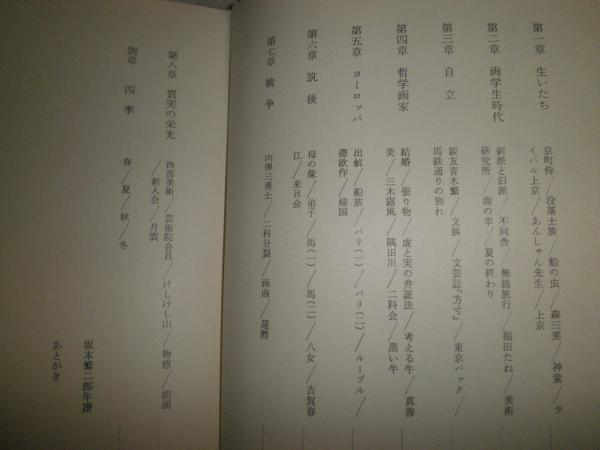 第一章 生いたち
京町侍／没落士族／絵の虫／森三美／神童／ラ
イバル上京／あんしゃん先生／上京
第二章 画学生時代
新派と旧派／不同舎／無銭旅行／福田たね／美術
研究所／海の幸／夏の終わり
第三章 自立
親友青木繁／文展／文芸誌『方寸』／東京パック／
馬鉄通りの別れ
第四章 哲学画家
結婚／張り物／虚と実の弁証法／考える牛／真善
美／三木露風／隅田川／二科会／黒い牛
第五章 ヨーロッパ
出航／船旅／パリ（一）／パリ（二）／ルーブル／
滞欧作／帰国
第六章 筑後
母の像／弟子／馬（一）／馬（二）／八女／古賀春
江／来目会
第七章 戦争
肉弾三勇士／二科分裂／画商／還暦
第八章 質実の栄光
西部美術／芸術院会員／けしけし山／物感／能面
／新人会／月雲
別章 四季
春／夏／秋／冬
坂本繁二郎年譜
あとがき